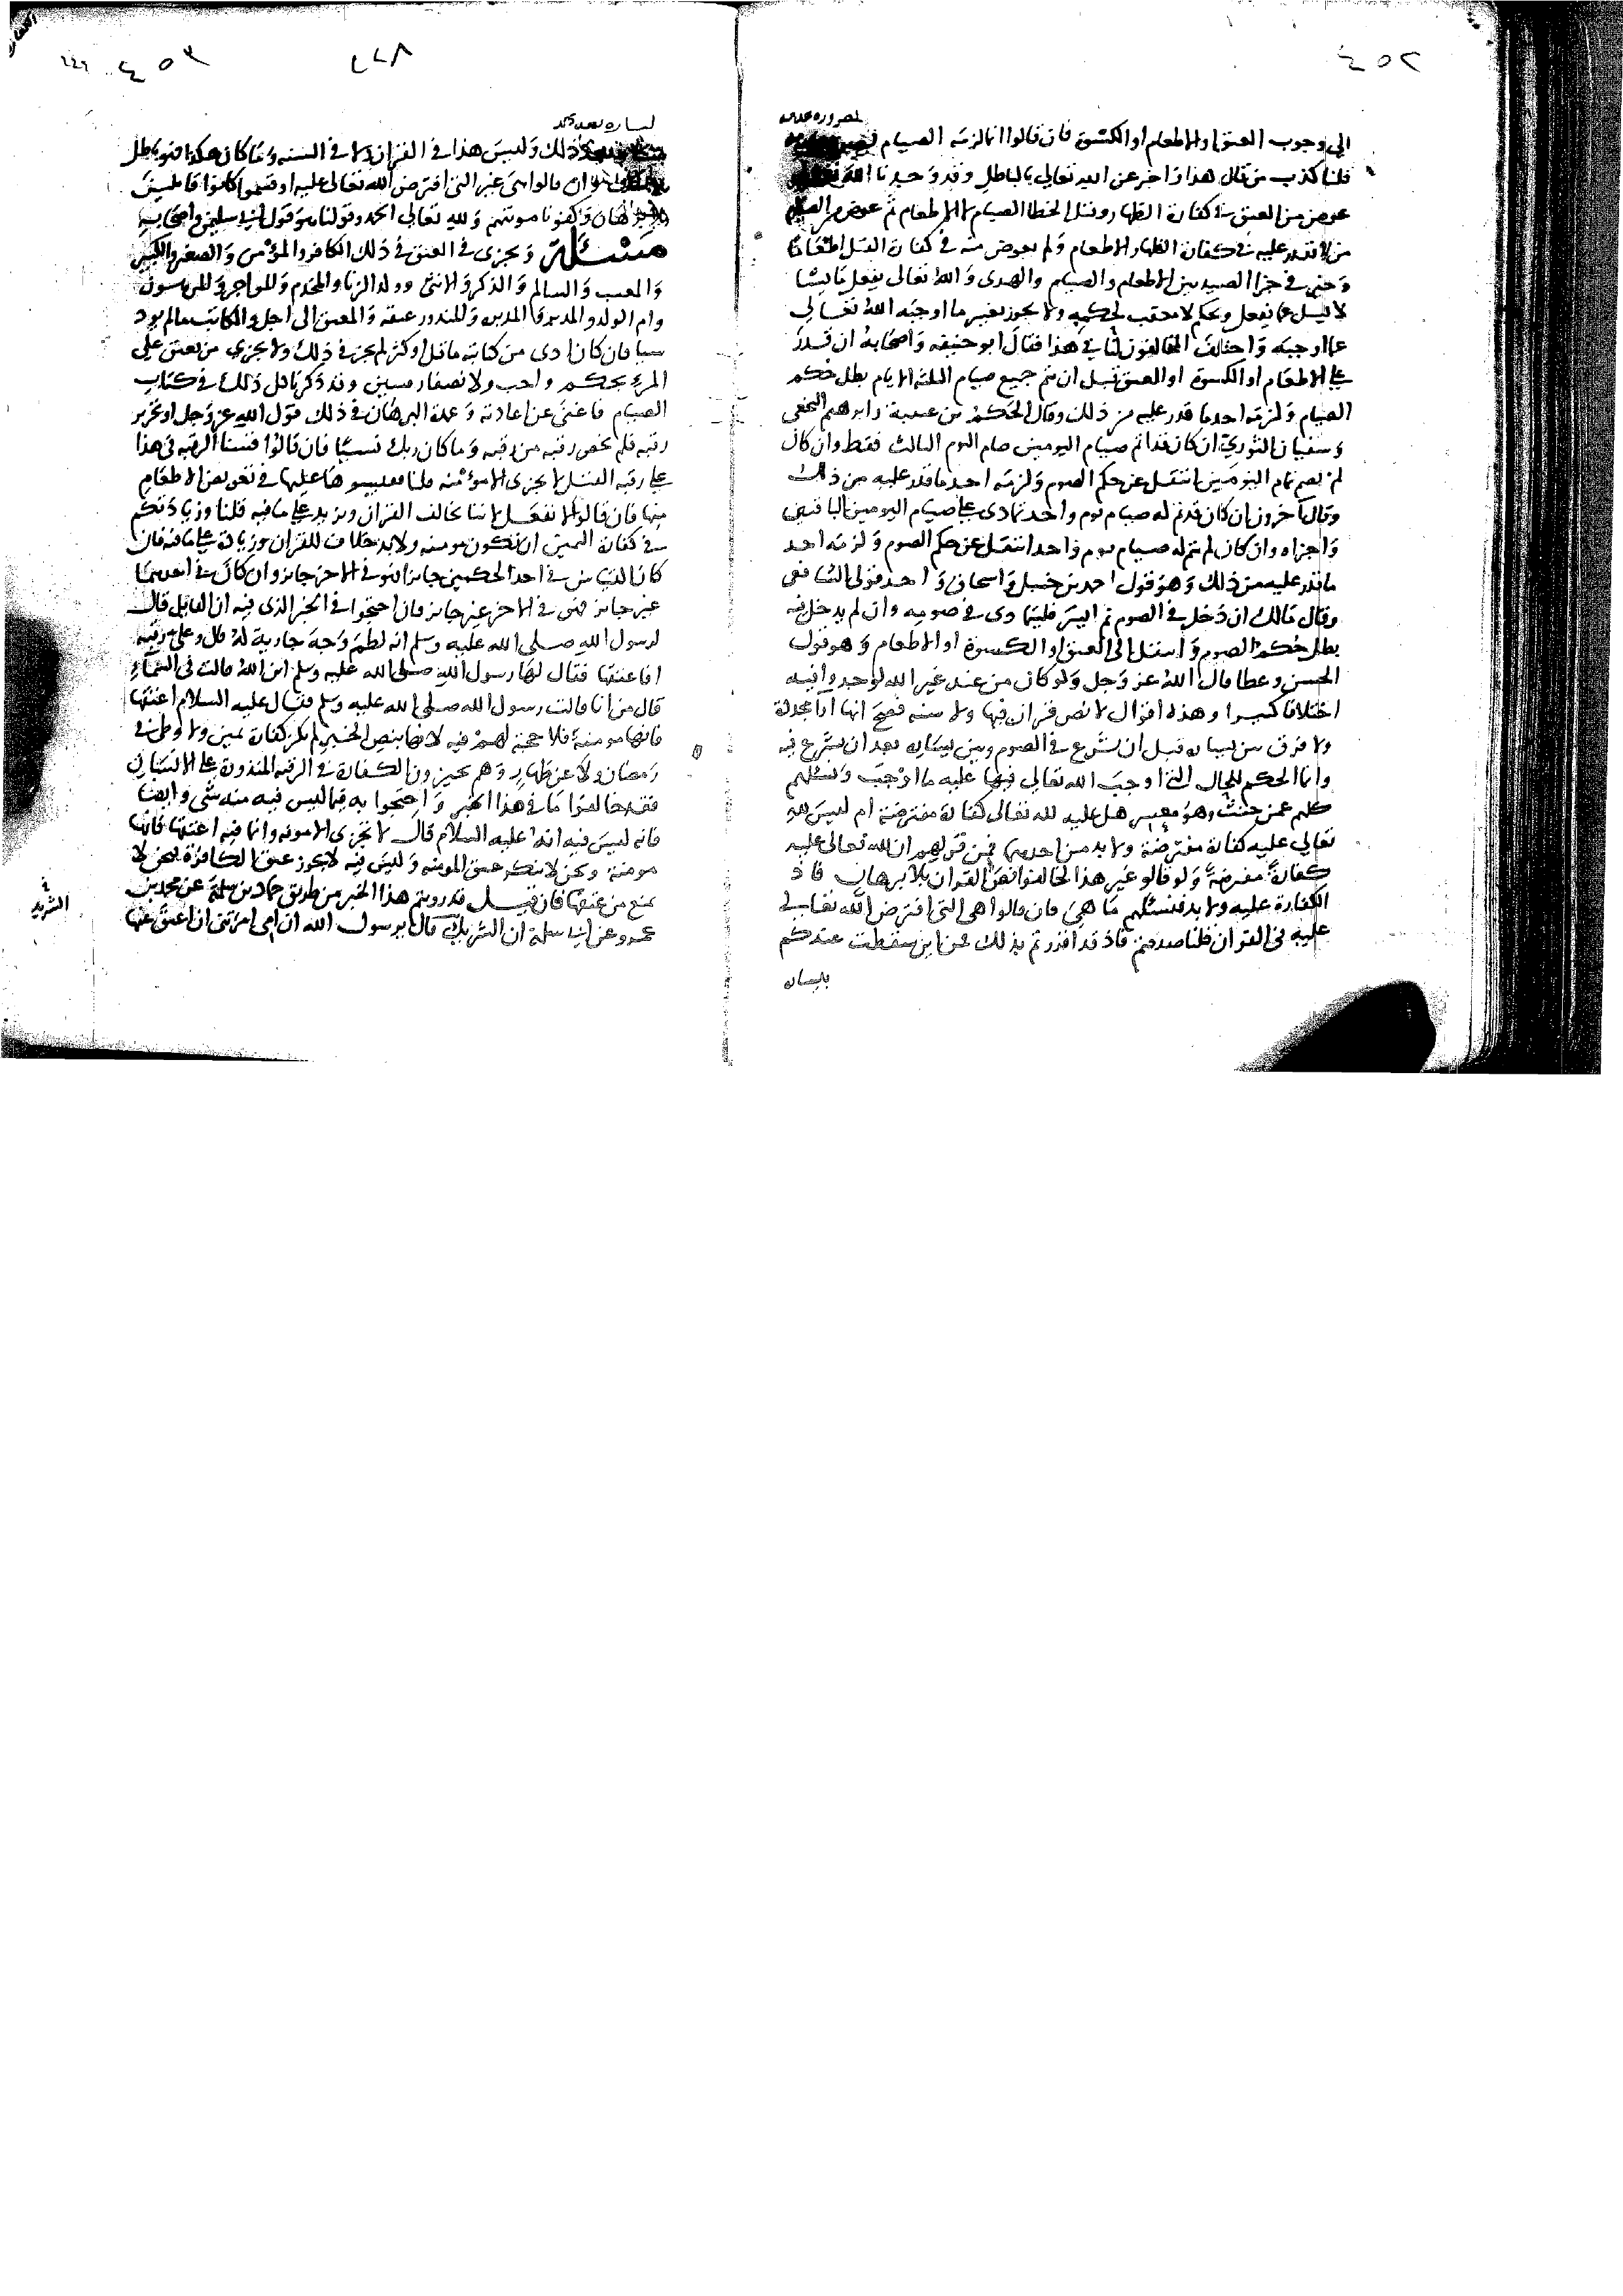 ٤٥٢
الى وجوب العتق او الاطعام او الكسوة فان قالوا انما لزمه الصيام
قلنا كذب من قال هذا واخبر عن الله تعالى بالباطل وقد وجدنا الله تعالى
عوض من العتق في كفارة الظهار وقتل الخطا الصيام لا الاطعام ثم عوض من الصيام
من لا يقدر عليه في كفارة الظهار الاطعام ولم يعوض منه في كفارة القتل اطعاما
وخير في جزا الصيد بين الاطعام والصيام والهدى والله تعالى يفعل ما يشا
لا يسل عما يفعل ويحكم لا معقب لحكمه ولا يجوز تغيير ما اوجبه الله تعالى
عما اوجبه واختلف المخالفون لنا في هذا فقال ابو حنيفه واصحابه ان قدر
على الاطعام او الكسوة او العتق قبل ان يتم جميع صيام الثلثة الايام بطل حكم
الصيام ولزمه احد ما قدر عليه من ذلك وقال الحكم بن عتيبة وابرهيم النخعي
وسفيان الثوري ان كان قد اتم صيام اليومين صام اليوم الثالث فقط وان كان
لم يصم تمام اليومين انتقل عن حكم الصوم ولزمه احد ما قدر عليه من ذلك
وقال آخرون ان كان قد تم له صيام يوم واحد تمادى على صيام اليومين الباقيين
واجزاه وان كان لم يتم له صيام يوم واحد انتقل عن حكم الصوم ولزمه احد
ما قدر عليه من ذلك وهو قول احمد بن حنبل واسحاق واحد قولى الشافعي
وقال مالك ان دخل في الصوم ثم ايسر فليتمادى في صومه وان لم يدخل فيه
بطل حكم الصوم وانتقل الى العتق او الكسوة او الاطعام وهو قول
الحسن وعطا قال الله عز وجل ولو كان من عند غير الله لوجدوا فيه
اختلافا كثيرا وهذه اقوال لا نص قران فيها ولا سنه فصح انها ارا محدثة
ولا فرق بين يساره قبل ان يشرع في الصوم وبين يساره بعد ان يشرع فيه
وانما الحكم للحال التي اوجب الله تعالى فيها عليه ما اوجب ونسئلهم
كلهم عمن حنث وهو معسر هل عليه لله تعالى كفارة مفترضة ام ليس لله
تعالى عليه كفارة مفترضة ولا بد من احدهما فمن قولهم ان لله تعالى عليه
كفارة مفرضة ولو قالو غير هذا لخالفوا نص القران بلا برهان فاذ
الكفارة عليه ولا بد فنسئلهم ما هي فان قالوا هي التي افترض الله تعالى
عليه في القران قلنا صدقتم فاذ قد اقررتم بذلك فمن اين سقطت عندكم
بيساره
٤٥٣
٤٤٨
٤٤٩
ليساره بعد ذلك
ذلك وليس هذا في القران ولا في السنه وما كان هكذا فهو باطل
وان قالوا شى غير التي افترض الله تعالى عليه او قسموا كانوا قائلين
بلا برهان وكفونا موتهم ولله تعالى الحمد وقولنا هو قول ابي سليمن واصحابه
مسئلة ويجزى في العتق في ذلك الكافر والمؤمن والصغير والكبير
والمعيب والسالم والذكر والانثى وولد الزنا والمخدم والمواجر والمرهون
وام الولد والمدبر والمدبره والمنذور عتقه والمعتق الى اجل والمكاتب ما لم يود
شيا فان كان ادى من كتابته ما قل او كثر لم يجز في ذلك ولا يجزي من يعتق على
المرء بحكم واجب ولا نصفا رقبتين وقد ذكرنا كل ذلك في كتاب
الصيام فاغنى عن اعادته وعمدة البرهان في ذلك قول الله عز وجل او تحرير
رقبه فلم يخص رقبه من رقبه وما كان ربك نسيا فان قالوا قسنا الرقبه في هذا
على رقبه القتل لا يجزى الا مومنه قلنا فقيسوها عليها في تعويض الاطعام
منها فان قالوا لا نفعل لاننا نخالف القران ونزيد على ما فيه قلنا وزيادتكم
في كفارة اليمين ان تكون مومنه ولا بد خلاف للقران وزيادة على ما فيه فان
كان القياس في احد الحكمين جائزا فهو في الاخر جايز وان كان في احدهما
غير جايز فهو في الاخر غير جايز فان احتجوا في الخبر الذى فيه ان القايل قال
لرسول الله صلى الله عليه وسلم انه لطم وجه جارية له قال وعلى رقبه
افاعتقها فقال لها رسول الله صلى الله عليه وسلم اين الله قالت في السماء
قال من انا قالت رسول الله صلى الله عليه وسلم فقال عليه السلام اعتقها
فانها مومنة فلا حجة لهم فيه لانها بنص الخبر لم تكن كفارة يمين ولا وطئ في
رمضان ولا عن ظهار وهم يجيزون الكفارة في الرقبه المنذورة على الانسان
فقد خالفوا ما في هذا الخبر واحتجوا به فيما ليس فيه منه شى وايضا
فانه ليس فيه انه عليه السلام قال لا تجزى الا مومنه وانما فيه اعتقها فانها
مومنة ونحن لا ننكر عتق المومنه وليس فيه لا يجوز عتق الكافرة فنحن لا
نمنع من عتقها فان قيل قد رويتم هذا الخبر من طريق حماد بن سلمة عن محمد بن
عمرو عن ابي سلمه ان الشريك قال يرسول الله ان امى امرتني ان اعتق عنها
الشريد